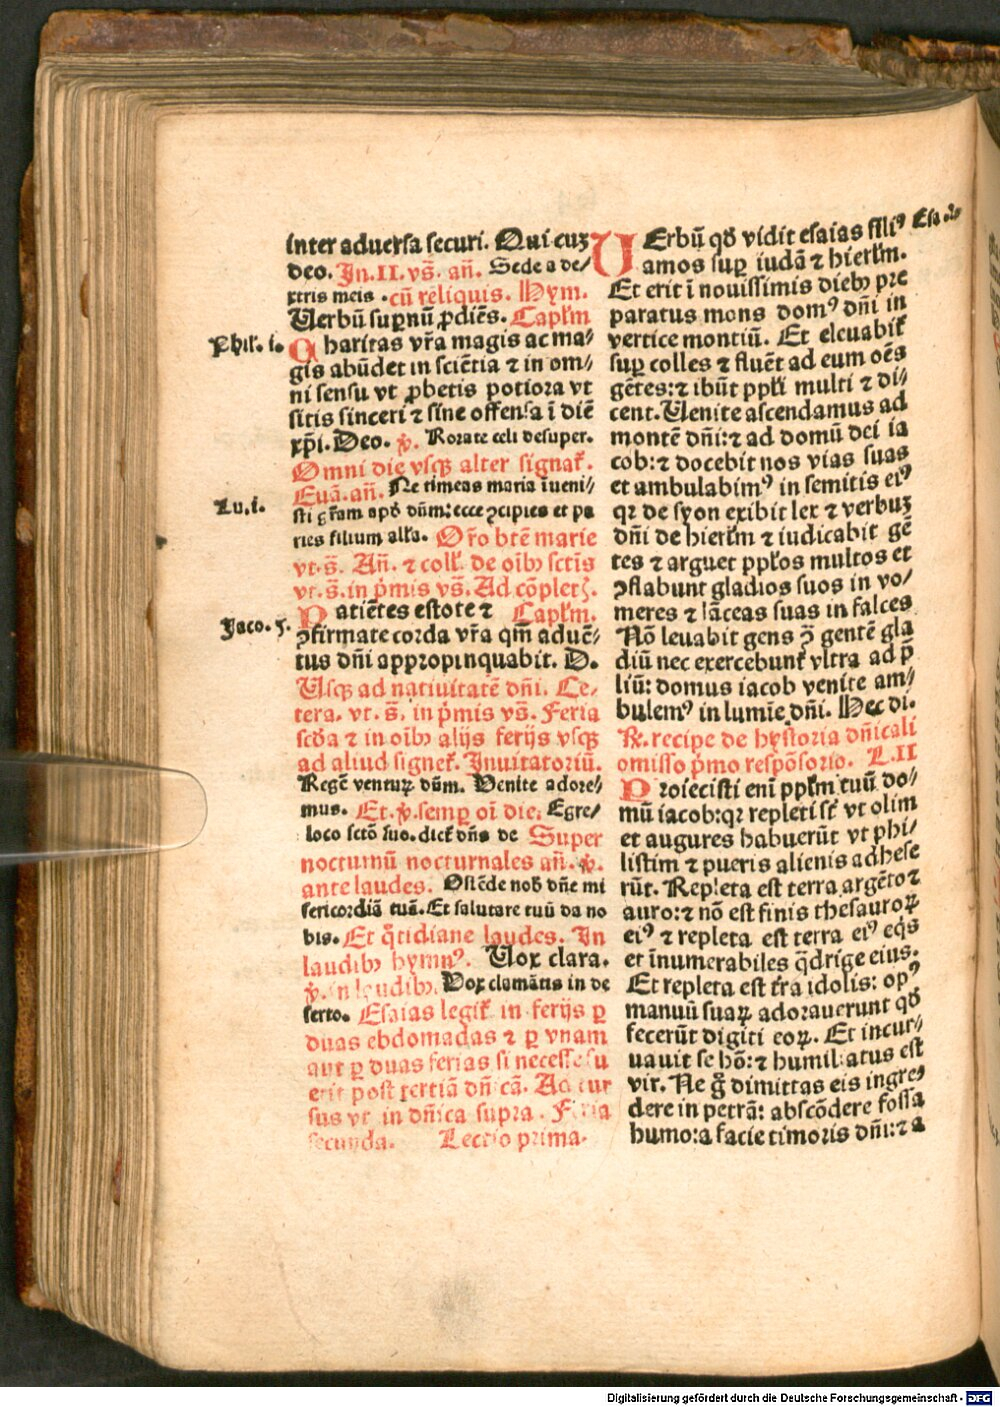 inter aduersa securi. Qui cuȝ
deo. In.II. vs̄. an̄. Sede a de/
xtris meis . cū reliquis. Hym.
Uerbū suꝑnū ꝓdiēs. Capłm
Phil. i. Charitas vr̄a magis ac ma/
gis abūdet in sciētia ⁊ in om/
ni sensu vt ꝓbetis potiora vt
sitis sinceri ⁊ sine offensa ī diē
xp̄i. Deo. ℣. Rorate celi desuper.
Omni die vsqꝫ alter signať.
Euā. an̄. Ne timeas maria īueni/
Lu. i. sti gr̄am apď dūm: ecce ꝯcipies et pa
ries filium alła. Or̄o btē marie
vt. s̄. An̄. ⁊ coll̄. de oībꝫ sctīs
vt. s̄. in ṗmis vs̄. Ad cōpleť.
Patiētes estote ⁊ Capłm.
Jaco. 5. ꝯfirmate corda vr̄a qm̄ aduē/
tus dn̄i appropinquabit. D.
Usqꝫ ad natiuitatē dn̄i. Ce/
tera. vt. s̄. in ṗmis vs̄. Feria
scďa ⁊ in oībꝫ alijs ferijs vsqꝫ
ad aliud signeť. Inuitatoriū.
Regē venturꝝ dūm. Venite adore/
mus. Et. ℣. semꝑ oī die. Egre/
loco sctō suo. dicť dn̄s de Super
nocturnū nocturnales an̄. ℣.
ante laudes. Ostēde nob̄ dn̄e mi
sericordiā tuā. Et salutare tuū da no
bis. Et q̄tidiane laudes. In
laudibꝫ hymnꝰ. Uox clara.
℣. in laudibꝫ. Vox clamātis in de
serto. Esaias legiť in ferijs ꝑ
duas ebdomadas ⁊ ꝑ vnam
aut ꝑ duas ferias si necesse fu
erit post tertiā dn̄icā. Ad cur
sus vt in dn̄ica supra. Feria
secunda. Lectio prima.
UErbū qď vidit esaias filiꝰ Esa. 2.
amos suꝑ iudā ⁊ hierłm.
Et erit ī nouissimis diebꝫ pre
paratus mons domꝰ dn̄i in
vertice montiū. Et eleuabiť
suꝑ colles ⁊ fluēt ad eum oēs
gētes: ⁊ ibūt ppłi multi ⁊ di/
cent. Uenite ascendamus ad
montē dn̄i: ⁊ ad domū dei ia
cob: ⁊ docebit nos vias suas
et ambulabimꝰ in semitis eiꝰ
qꝛ de syon exibit lex ⁊ verbuȝ
dn̄i de hierłm ⁊ iudicabit gē
tes ⁊ arguet ppłos multos et
ꝯflabunt gladios suos in vo/
meres ⁊ lāceas suas in falces
Nō leuabit gens ꝯ̄ gentē gla
diū nec exercebunť vltra ad p̄
liū: domus iacob venite am/
bulemꝰ in lumīe dn̄i. Hec di.
℟. recipe de hystoria dn̄icali
omisso ṗmo respōsorio. L. II
Proiecisti eni ppłm tuū do/
mū iacob: qꝛ repleti sť vt olim
et augures habuerūt vt phi/
listim ⁊ pueris alienis adhese
rūt. Repleta est terra argēto ⁊
auro: ⁊ nō est finis thesauroꝝ
eiꝰ ⁊ repleta est terra eiꝰ eq̄s
et īnumerabiles q̄drige eius.
Et repleta est tr̄a idolis: opꝰ
manuū suaꝝ adorauerunt qď
fecerūt digiti eoꝝ. Et incur/
uauit se hō: ⁊ humiliatus est
vir. Ne g̊ dimittas eis ingre/
dere in petrā: abscōdere fossa
humo: a facie timoris dn̄i: ⁊ a
Digitalisierung gefördert durch die Deutsche Forschungsgemeinschaft - DFG